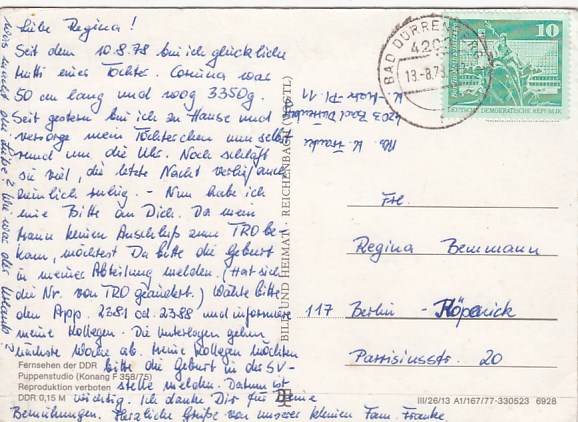 Liebe Regina!
Seit dem 10.8.78 bin ich glückliche
Mutti einer Tochter. Corina war
50 cm lang und wog 3350g.
Seit gestern bin ich zu Hause und
versorge mein Töchterchen nun selbst
rund um die Uhr. Noch schläft
sie viel, die letzte Nacht verlief auch
ziemlich ruhig. - Nun habe ich
eine Bitte an Dich. Da mein
Mann keinen Anschluß zum TRO be-
kam, möchtest Du bitte die Geburt
in meiner Abteilung melden. (Hat sich
die Nr. von TRO geändert.) Wähle bitte
den App. 2381 od. 2388 und informiere
meine Kollegen. Die Unterlagen gehen
nächste Woche ab. Meine Kollegen möchten
bitte die Geburt in der SV-
stelle melden. Datum ist
wichtig. Ich danke Dir für Deine
Bemühungen. Herzliche Grüße von unserer kleinen Fam. Franke
Was macht die Liebe? Wie war der Urlaub?
Fernsehen der DDR
Puppenstudio (Konang F 358/75)
Reproduktion verboten
DDR 0,15 M
BILD UND HEIMAT · REICHENBACH (VOGTL)
Abs. K. Franke
4203 Bad Dürrenberg
K.-Marx-Pl. 11
BAD DÜRRENBERG
420
13.-8.78
10
DEUTSCHE DEMOKRATISCHE REPUBLIK
Frl.
Regina Bemmann
117 Berlin - Köpenick
Parrisiusstr. 20
III/26/13 A1/167/77-330523 6928